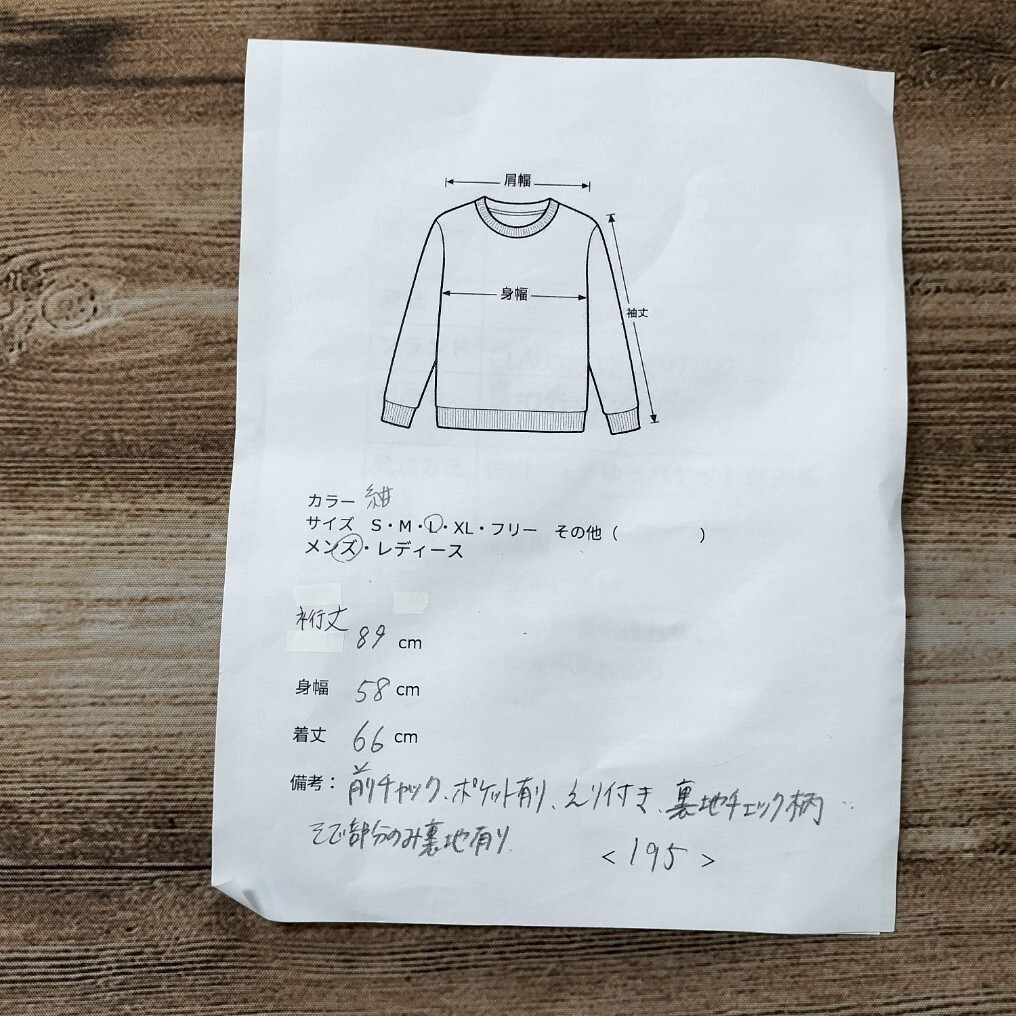 肩幅
身幅
袖丈
カラー 紺
サイズ S・M・L・XL・フリー その他（ ）
メンズ・レディース
裄丈 89 cm
身幅 58 cm
着丈 66 cm
備考： 前チャック、ポケット有り、えり付き、裏地チェック柄
そで部分のみ裏地有り
<195>